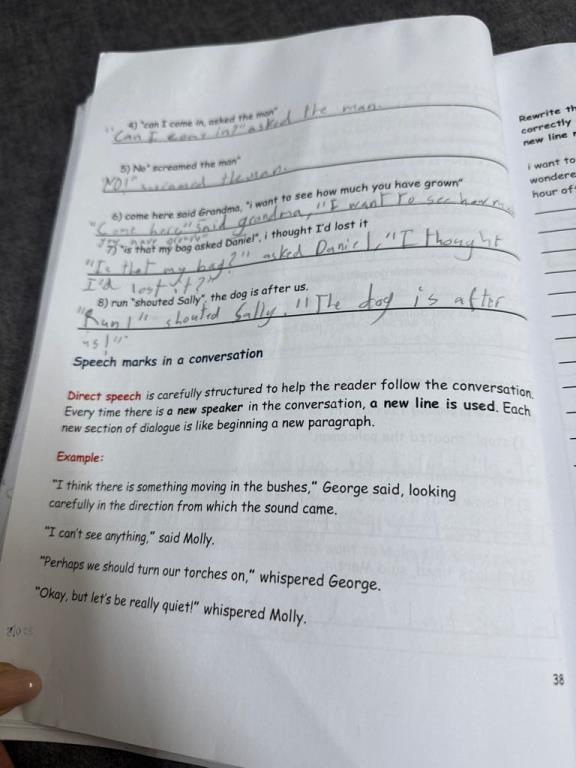 4) "can I come in, asked the man"
"Can I come in?" asked the man.
5) No" screamed the man"
"NO!" screamed the man.
6) come here said Grandma, "i want to see how much you have grown"
"Come here" said grandma, "I want to see how much
you have grown"
7) "is that my bag asked Daniel", i thought I'd lost it
"Is that my bag?" asked Daniel, "I thought
I'd lost it?"
8) run "shouted Sally", the dog is after us.
"Run!" shouted Sally. "The dog is after
us!"
Speech marks in a conversation
Direct speech is carefully structured to help the reader follow the conversation.
Every time there is a new speaker in the conversation, a new line is used. Each
new section of dialogue is like beginning a new paragraph.
Example:
"I think there is something moving in the bushes," George said, looking
carefully in the direction from which the sound came.
"I can't see anything," said Molly.
"Perhaps we should turn our torches on," whispered George.
"Okay, but let's be really quiet!" whispered Molly.
38
Rewrite th
correctly
new line
i want to
wondere
hour of